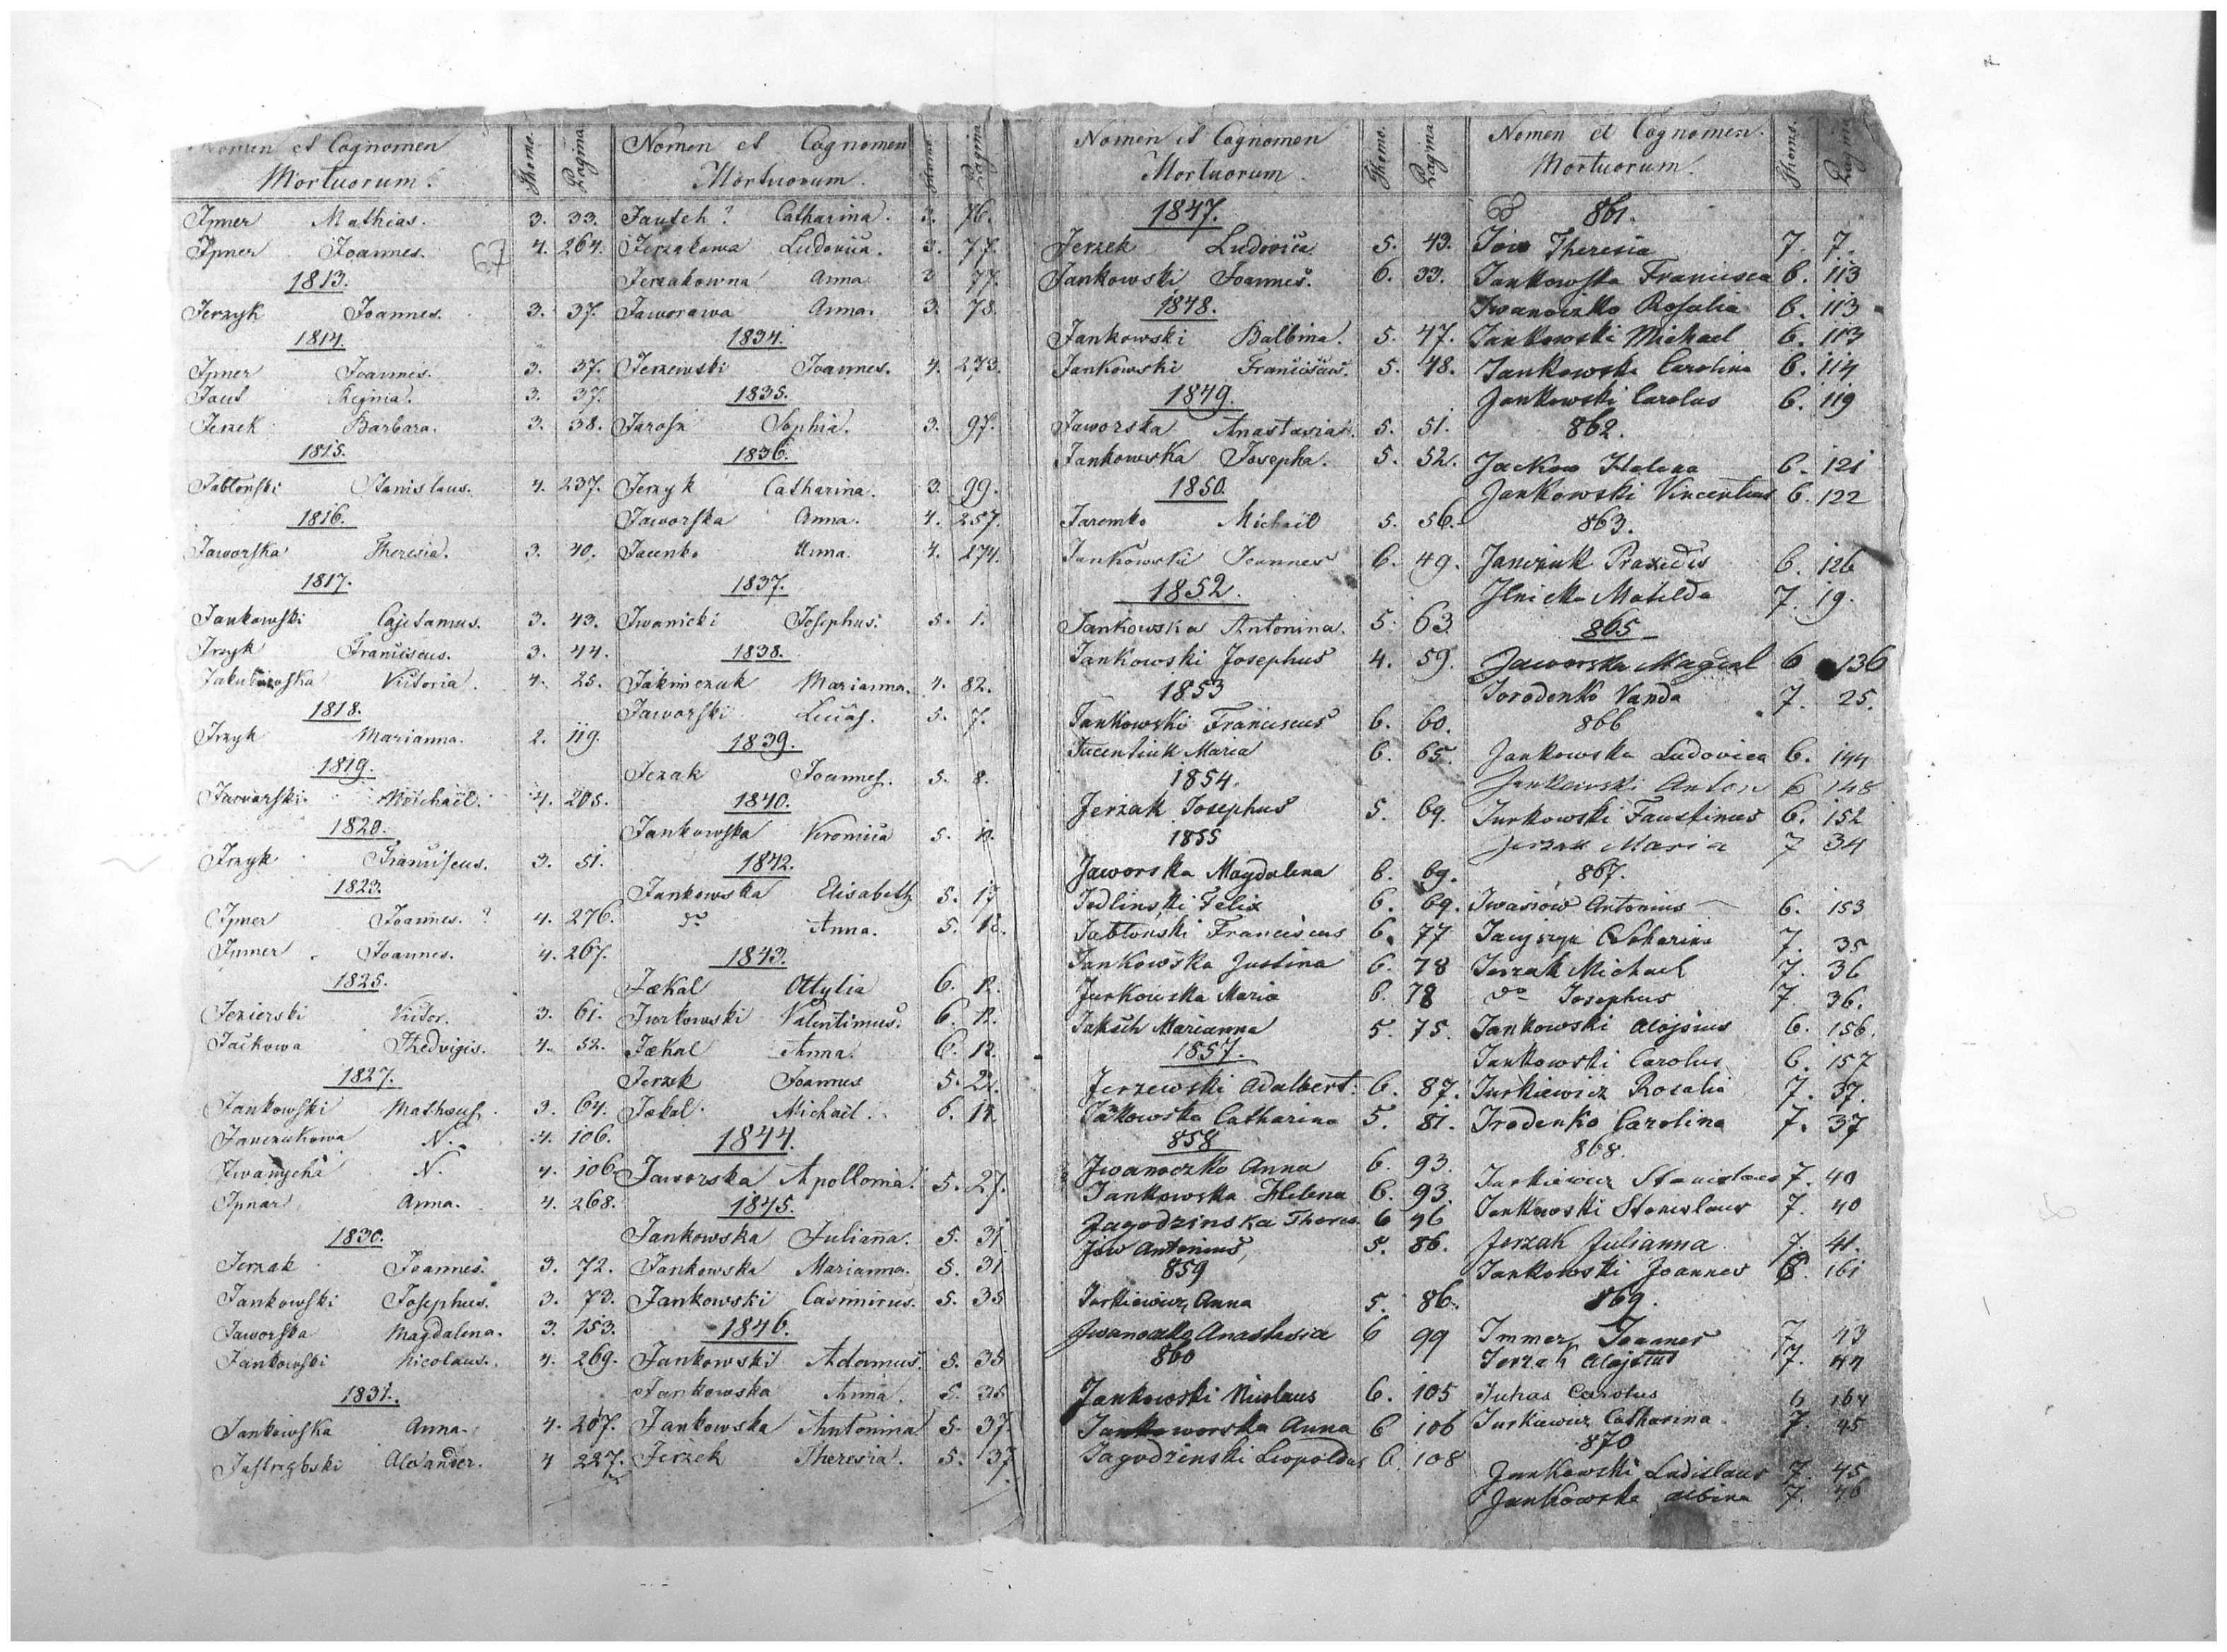 Nomen et Cognomen
Mortuorum.
Thomo.
Pagina
Ipner Mathias. 3. 33.
Ipner Joannes. 67 4. 264.
1813.
Jerzyk Joannes. 3. 37.
1814.
Ipner Joannes. 3. 37.
Jaus Regina. 3. 37.
Jerzek Barbara. 3. 38.
1815.
Jabłonski Stanislaus. 4. 237.
1816.
Jaworska Theresia. 3. 40.
1817.
Jankowski Cajetanus. 3. 43.
Jrzyk Franciscus. 3. 44.
Victoria. 4. 25.
1818.
Jrzyk Marianna. 2. 119.
1819.
Jaworski Michaël. 4. 205.
1820.
Jrzyk Franciscus. 3. 51.
1823.
Ipner Joannes. ? 4. 276.
Ipner Joannes. 4. 267.
1825.
Jezierski Victor. 3. 61.
Jackowa Hedvigis. 4. 52.
1827.
Jankowski Matheus. 3. 64.
Janczukowa N. 4. 106.
Iwanycha N. 4. 106.
Ipnar Anna. 4. 268.
1830.
Jerzak Joannes. 3. 72.
Jankowski Josephus. 3. 73.
Jaworska Magdalena. 3. 153.
Jankowski Nicolaus. 4. 269.
1831.
Jankowska Anna. 4. 207.
Jastrzębski Alexander. 4 227.
Nomen et Cognomen
Mortuorum.
Thomo.
Pagina
Jautch ? Catharina. 3. 76.
Jerzakowa Ludovica. 3. 77.
Jerzakowna Anna 3 77.
Jaworawa Anna. 3. 78.
1834.
Jerzewski Joannes. 4. 273.
1835.
Jarosz Sophia. 3. 97.
1836.
Jerzyk Catharina. 3. 99.
Jaworska Anna. 4. 257.
Jacenko Anna. 4. 274.
1837.
Iwanicki Josephus. 5. 1.
1838.
Jakimczuk Marianna. 4. 82.
Jaworski Lucas. 5. 7.
1839.
Jezak Joannes. 5. 8.
1840.
Jankowska Veronica 5.
1842.
Jankowska Elisabeth 5. 17
do Anna. 5. 18.
1843.
Jækal Ottylia 6. 12.
Jurkowski Valentinus. 6. 12.
Jækal Anna. 6. 12.
Jerzek Joannes 5. 22.
Jækal Michael. 6. 12.
1844.
Jaworska Apollonia. 5. 27.
1845.
Jankowska Julianna. 5. 31.
Jankowska Marianna. 5. 31
Jankowski Casimirus. 5. 33
1846.
Jankowski Adamus. 5. 35
Jankowska Anna. 5. 35
Jankowska Antonina 5. 37.
Jerzek Theresia. 5. 37.
Nomen et Cognomen
Mortuorum.
Thomo.
Pagina
1847.
Jerzek Ludovica 5. 43.
Jankowski Joannes. 6. 33.
1848.
Jankowski Balbina. 5. 47.
Jankowski Franciscus. 5. 48.
1849.
Jaworska Anastasia. 5. 51.
Jankowska Josepha. 5. 52.
1850.
Jaremko Michaël 5. 56.
Jankowski Joannes 6. 49.
1852.
Jankowska Antonina. 5. 63.
Jankowski Josephus 4. 59.
1853
Jankowski Franciscus 6. 60.
Jucentiuk Maria 6. 65.
1854.
Jerzak Josephus 5. 69.
1855
Jaworska Magdalena 6. 69.
Jedlinski Felix 6. 69.
Jabłonski Franciscus 6. 77
Jankowska Justina 6. 78
Jurkowska Maria 6. 78
Jaksch Marianna 5. 75.
1857.
Jerzewski Adalbert. 6. 87.
Catharina 5. 81.
858
Iwanoczko Anna 6. 93.
Jankowska Helena 6. 93.
Jagodzinska Theres. 6 96
Jów Antonius 5. 86.
859
Jurkiewicz Anna 5. 86.
Iwanoczko Anastasia 6 99
860
Jankowski Nicolaus 6. 105
Anna 6 106
Jagodzinski Leopoldus 6. 108
Nomen et Cognomen.
Mortuorum.
Thomo.
Pagina
861.
Jów Theresia 7. 7.
Jankowska Francisca 6. 113
Iwanoczko Rosalia 6. 113
Jankowski Michael 6. 113
Jankowska Carolina 6. 114
Jankowski Carolus 6. 119
862.
Jackow Helena 6. 121
Jankowski Vincentius 6. 122
863.
Janczuk Praxedis 6. 126
Ilnicka Matilda 7. 19.
865
Jaworska Magdal 6 136
Jorodenko Vanda 7. 25.
866
Jankowska Ludovica 6. 144
Jankowski Anton 6 148
Jurkowski Faustinus 6. 152
Jerzak Maria 7 34
867.
Iwasiów Antonius 6. 153
Catharina 7. 35
Jerzak Michael 7. 36
do Josephus 7. 36.
Jankowski Alojsius 6. 156.
Jankowski Carolus 6. 157
Jurkiewicz Rosalia 7. 37.
Irodenko Carolina 7. 37
868.
Jurkiewicz Stanislaus 7. 40
Jankowski Stanislaus 7. 40
Jerzak Julianna 7. 41.
Jankowski Joannes 6. 161
869.
Immer Joannes 7. 43
Jerzak Alojsius 7. 44
Juhas Carolus 6 164
Jurkiewicz Catharina 7. 45
870
Jankowski Ladislaus 7. 45
Jankowska Albina 7. 46